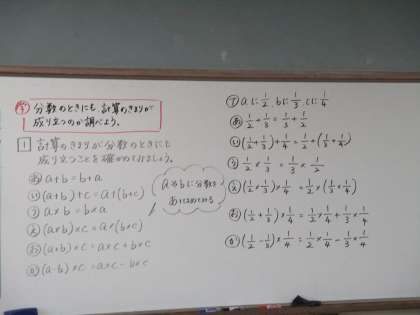 学 分数のときにも、計算のきまりが
成り立つのか調べよう。
1 計算のきまりが分数のときにも
成り立つことを確かめましょう。
あ a+b=b+a
い (a+b)+c=a+(b+c)
う a×b=b×a
え (a×b)×c=a×(b×c)
お (a+b)×c=a×c+b×c
か (a-b)×c=a×c-b×c
aやbに分数を
あてはめてみる
aに1/2、bに1/3、cに1/4
あ 1/2+1/3=1/3+1/2
い (1/2+1/3)+1/4=1/2+(1/3+1/4)
う 1/2×1/3=1/3×1/2
え (1/2×1/3)×1/4=1/2×(1/3×1/4)
お (1/2+1/3)×1/4=1/2×1/4+1/3×1/4
か (1/2-1/3)×1/4=1/2×1/4-1/3×1/4